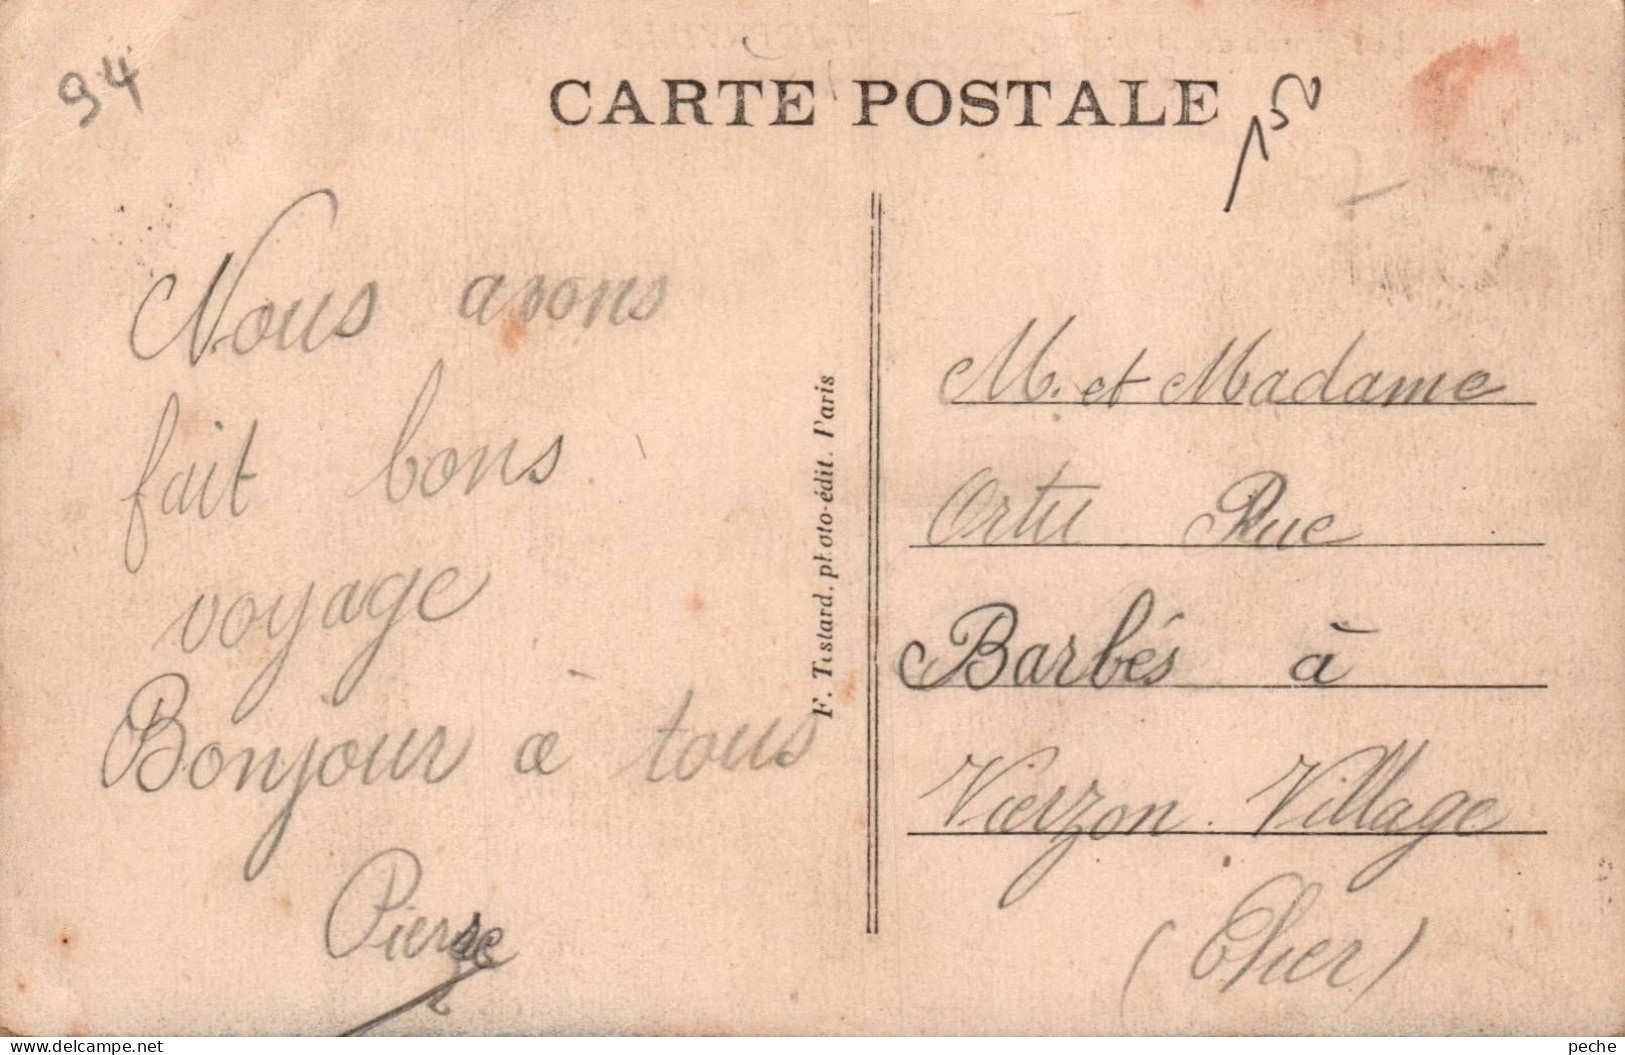 94
CARTE POSTALE
150
Nous avons
fait bons
voyage
Bonjour a tous
Pierre
F. Testard. photo-édit. Paris
M. et Madame
Ortu Rue
Barbés à
Vierzon. Village
(Cher)
peche
© delcampe.net